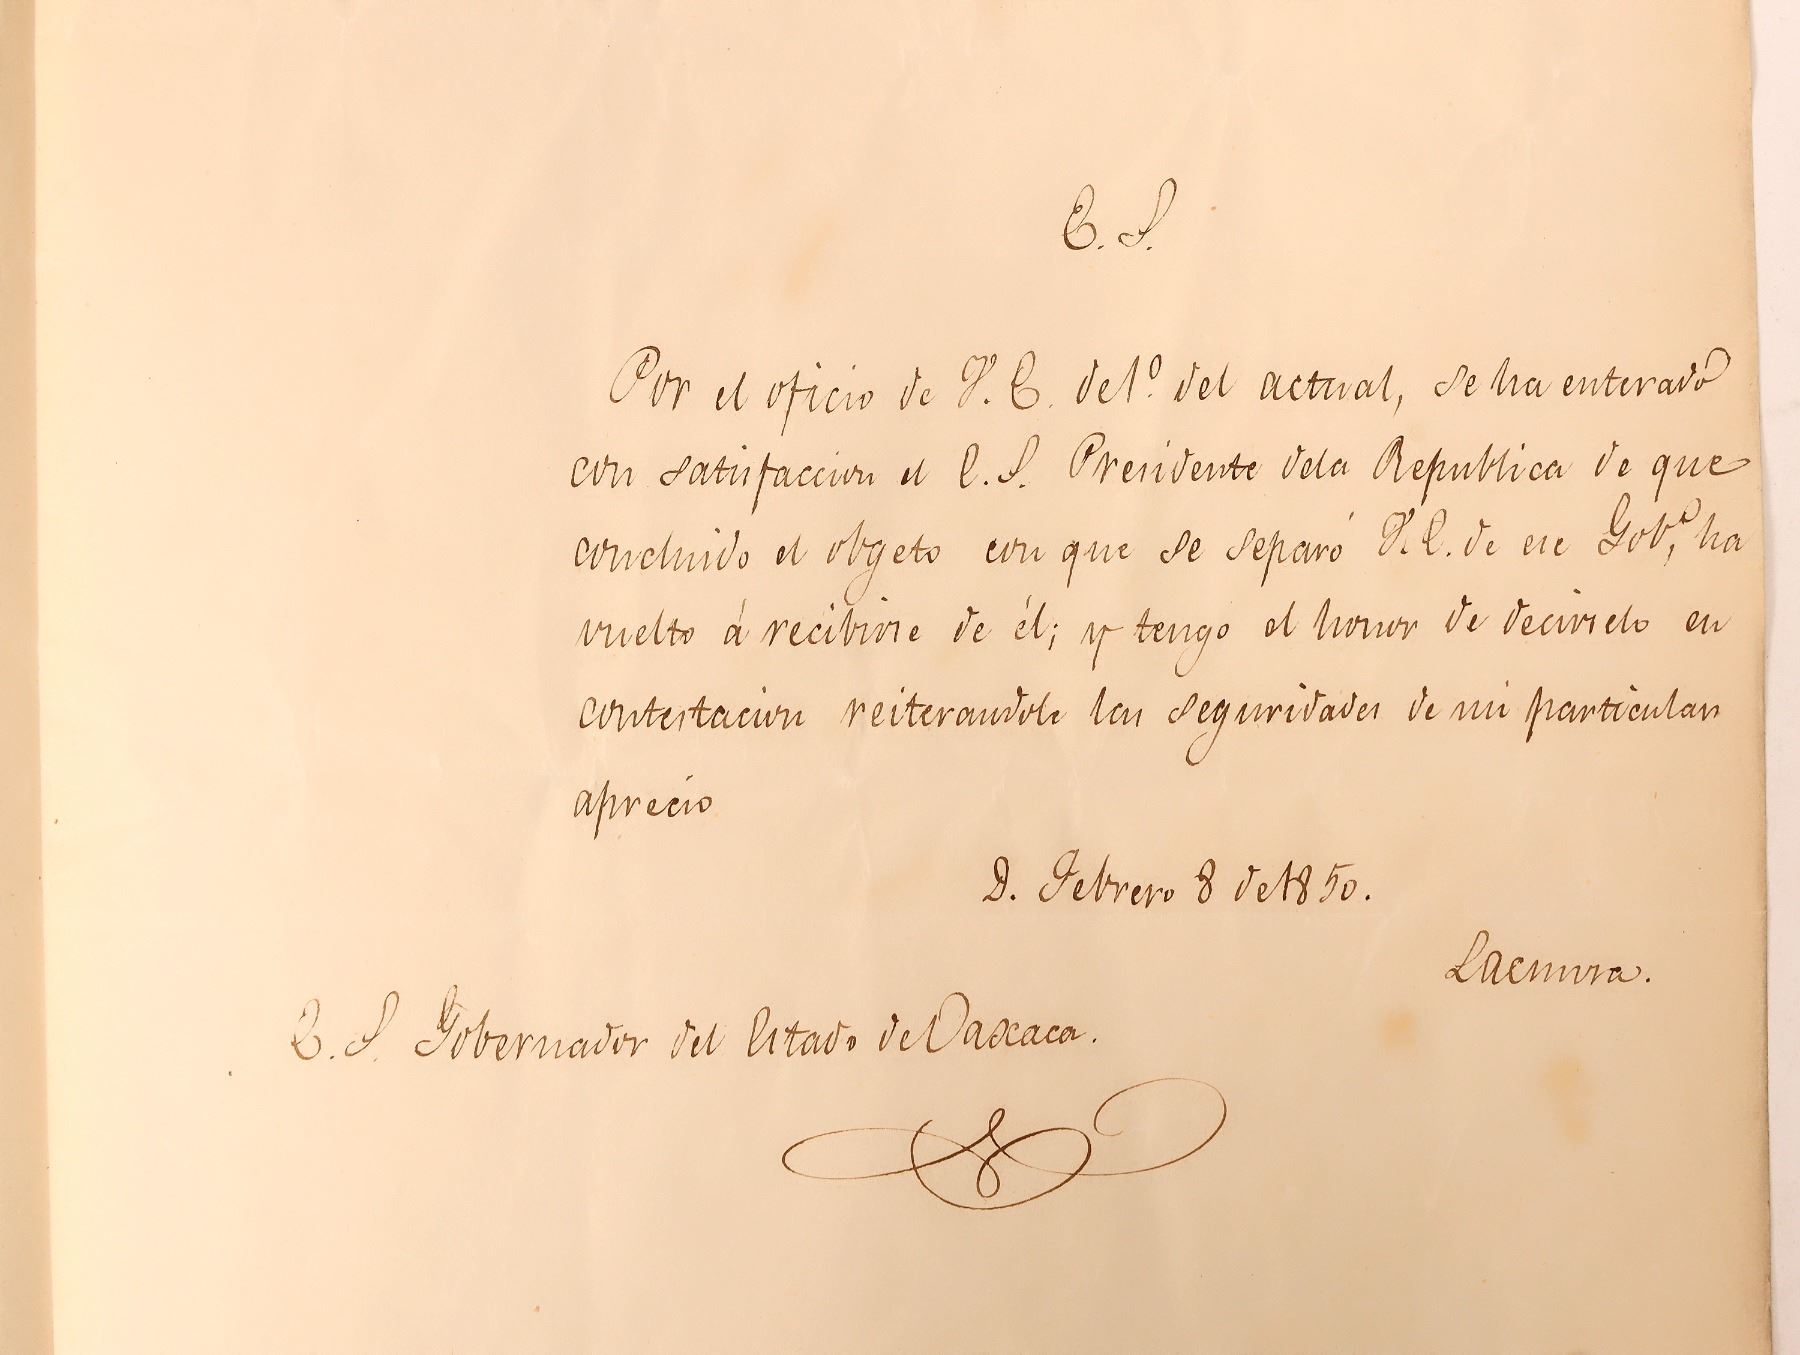 E. S.
Por el oficio de V. E. de 1º. del actual, se ha enterado
con satisfaccion el E. S. Presidente dela Republica de que
concluido el obgeto con que se separó V. E. de ese Gobº, ha
vuelto á recibirse de él; y tengo el honor de decirselo en
contestacion reiterandole las seguridades de mi particular
aprecio
D. Febrero 8 de 1850.
E. S. Gobernador del Estado de Oaxaca.